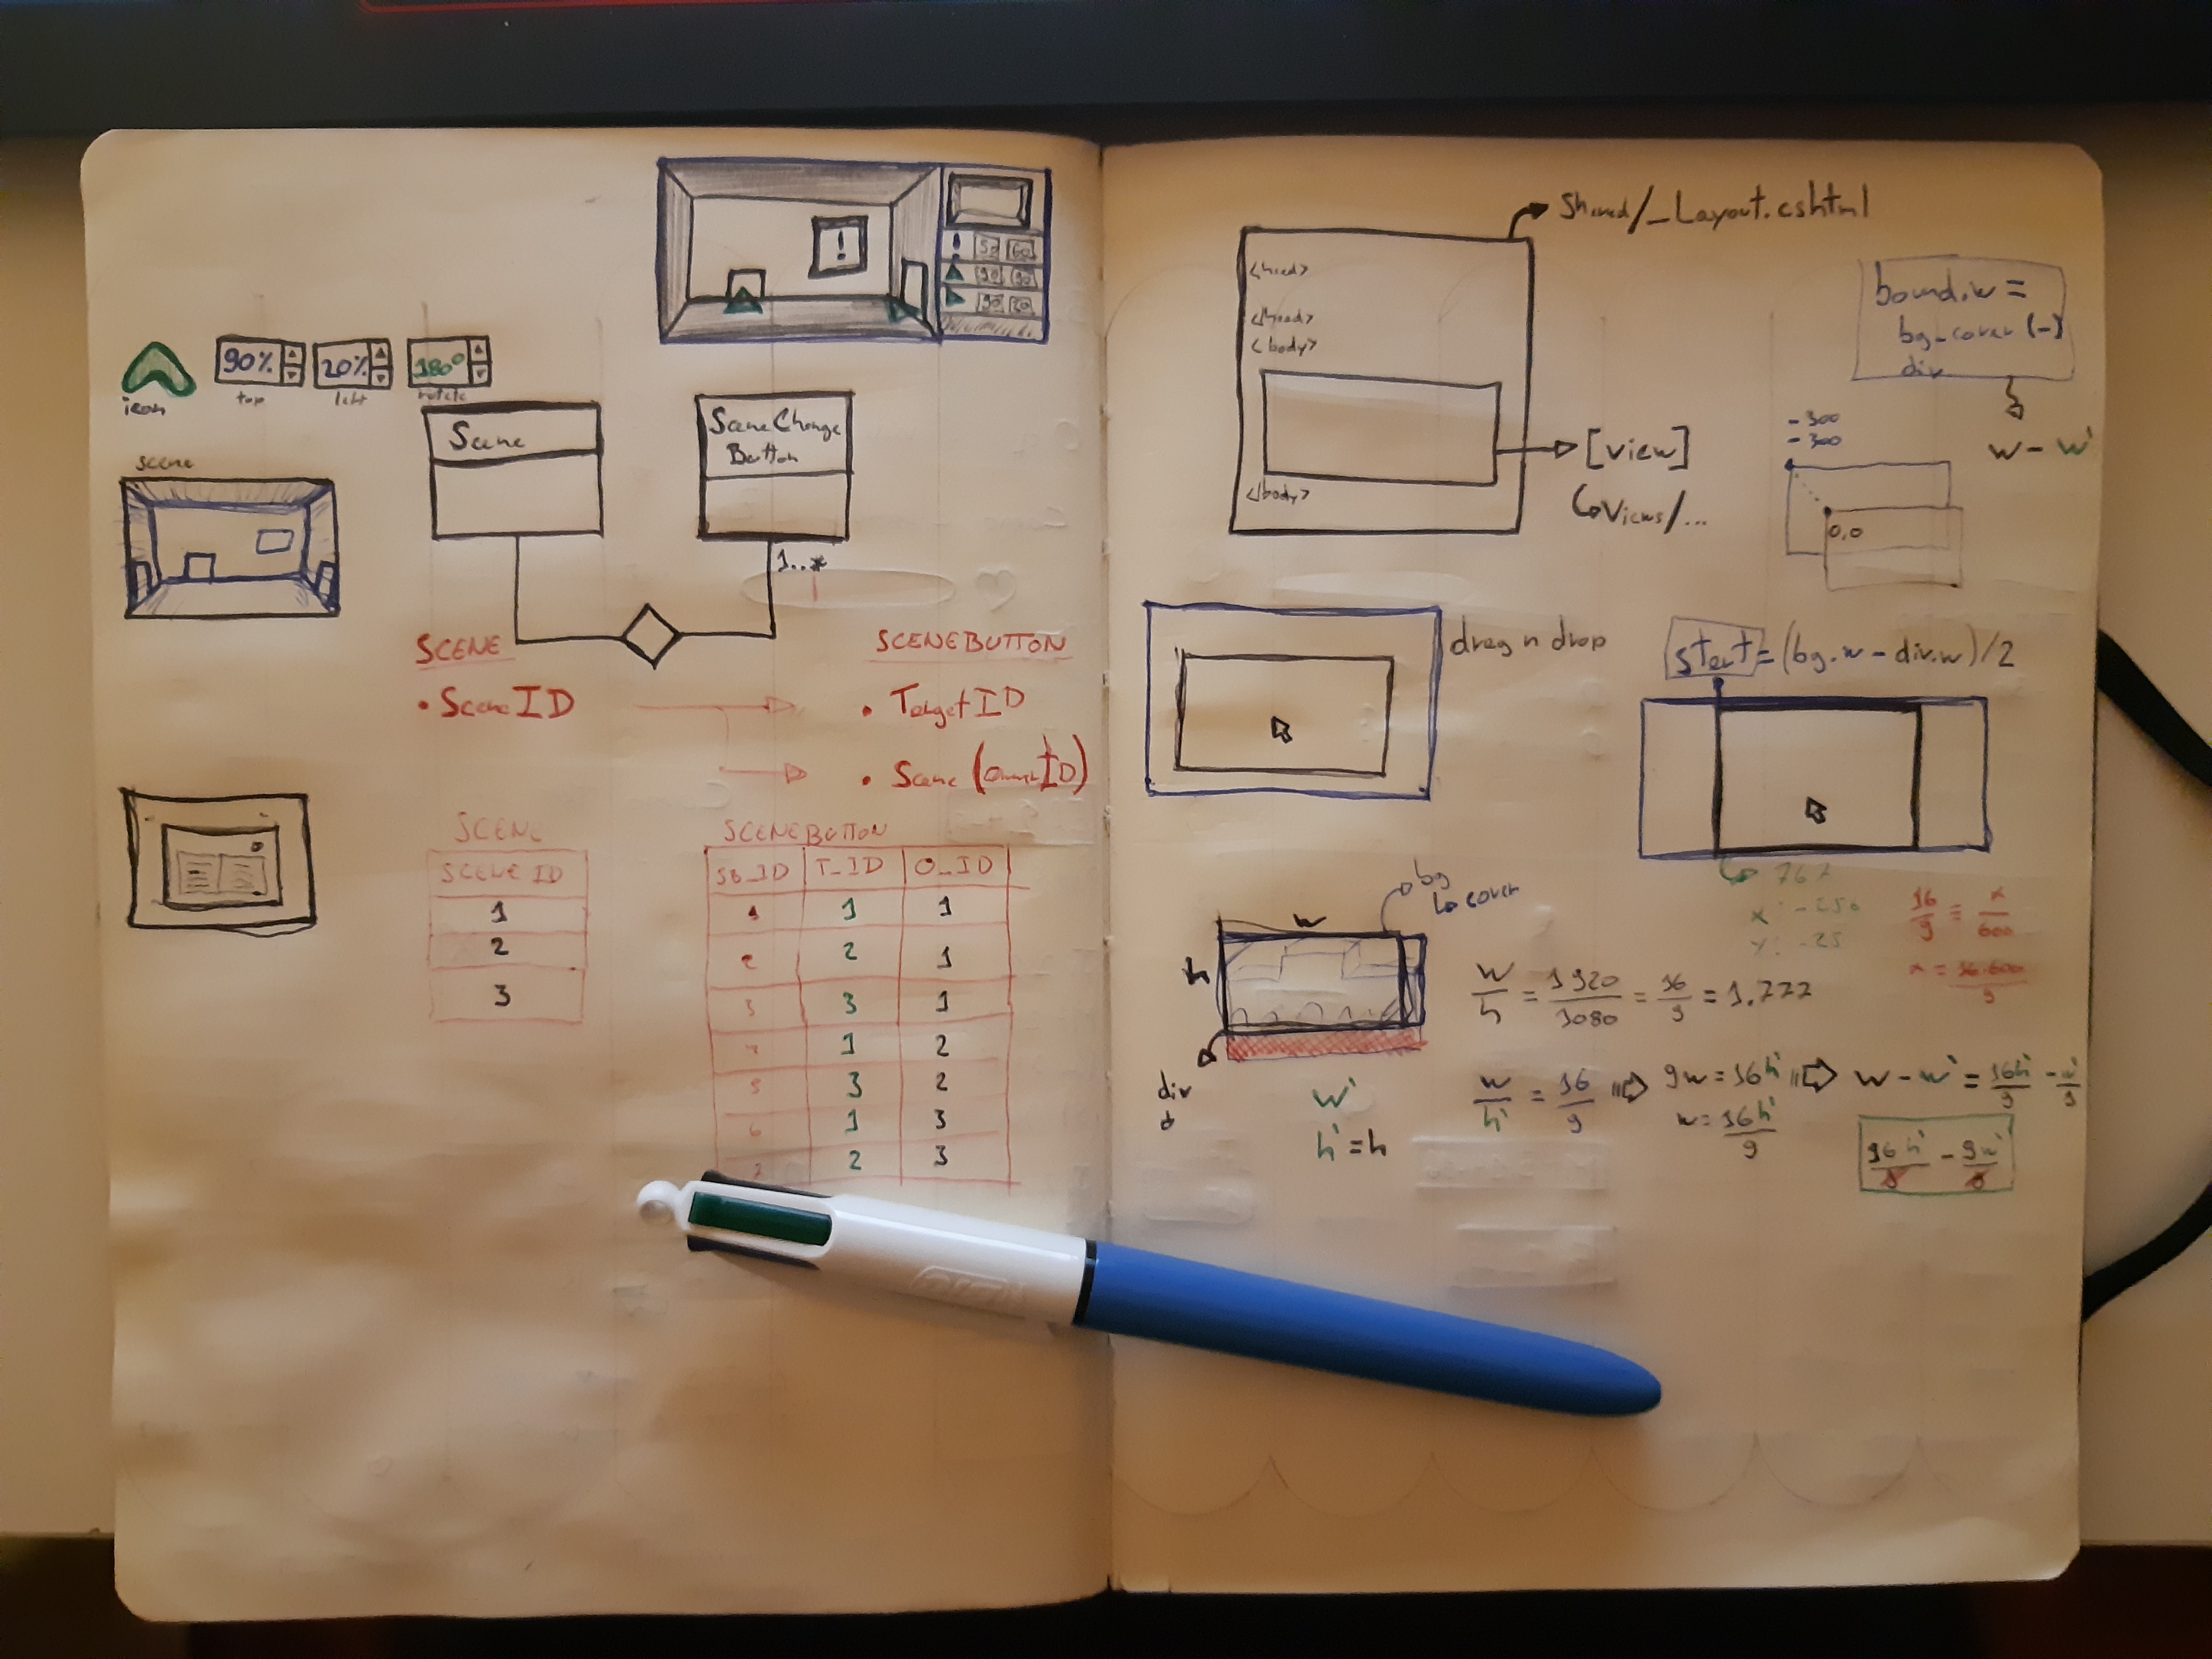 ! 50 60
90 90
90 20
90% 20% 180°
icon top left rotate
Scene
SceneChange
Button
scene
1..*
SCENE
• SceneID
SCENEBUTTON
• TargetID
• Scene (OwnerID)
SCENE
SCENE ID
1
2
3
SCENEBUTTON
SB_ID T_ID O_ID
1 1 1
2 2 1
3 3 1
4 1 2
5 3 2
6 1 3
7 2 3
Shared/_Layout.cshtml
<head>
</head>
<body>
</body>
[view]
Views/...
bound.w =
bg_cover (-)
div
w - w'
-300
-300
0,0
drag n drop
start = (bg.w - div.w)/2
767
x: -250
y: -25
16/9 = x/600
x = 16·600/9
bg
cover
w
h
div
w'
h' = h
w/h = 1920/1080 = 16/9 = 1.777
w/h' = 16/9 ⇒ 9w = 16h' ⇒ w - w' = 16h'/9 - w'/9
w = 16h'/9
16h'/9 - 9w'/9
BIC